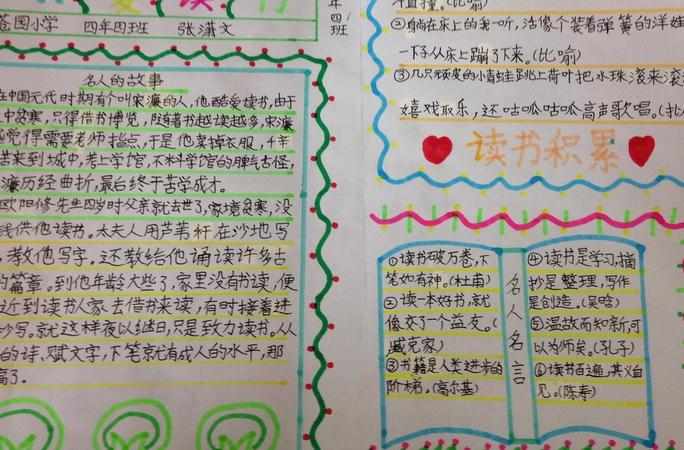 爱读书
苍图小学 四年四班 张潇文
年四班
名人的故事
在中国元代时期有个叫宋濂的人,他酷爱读书,由于
中贫寒,只得借书博览,随着书越读越多,宋濂
觉得需要老师指点,于是他卖掉衣服,千辛
苦来到城中,考上学馆,不料学馆的脾气古怪,
濂历经曲折,最后终于苦学成才。
欧阳修先生四岁时父亲就去世了,家境贫寒,没
钱供他读书。太夫人用芦苇秆在沙地写
,教他写字。还教给他诵读许多古
的篇章。到他年龄大些了,家里没有书读,便
近到读书人家去借书来读,有时接着进
抄写。就这样夜以继日,只是致力读书。从
的诗,赋文字,下笔就有成人的水平,那
高了。
直撞。(比喻)
②躺在床上的我一听,活像个装着弹簧的洋娃
一下子从床上蹦了下来。(比喻)
③几只顽皮的小青蛙跳上荷叶把水珠滚来滚
嬉戏取乐,还咕呱咕呱高声歌唱。
读书积累
①读书破万卷,下
笔如有神。(杜甫)
②读一本好书,就
像交了一个益友。(
臧克家)
③书籍是人类进步的
阶梯。(高尔基)
名人名言
④读书是学习,摘
抄是整理,写作
是创造。(吴晗)
⑤温故而知新,可
以为师矣。(孔子)
⑥读书百遍,其义自
见。(陈寿)